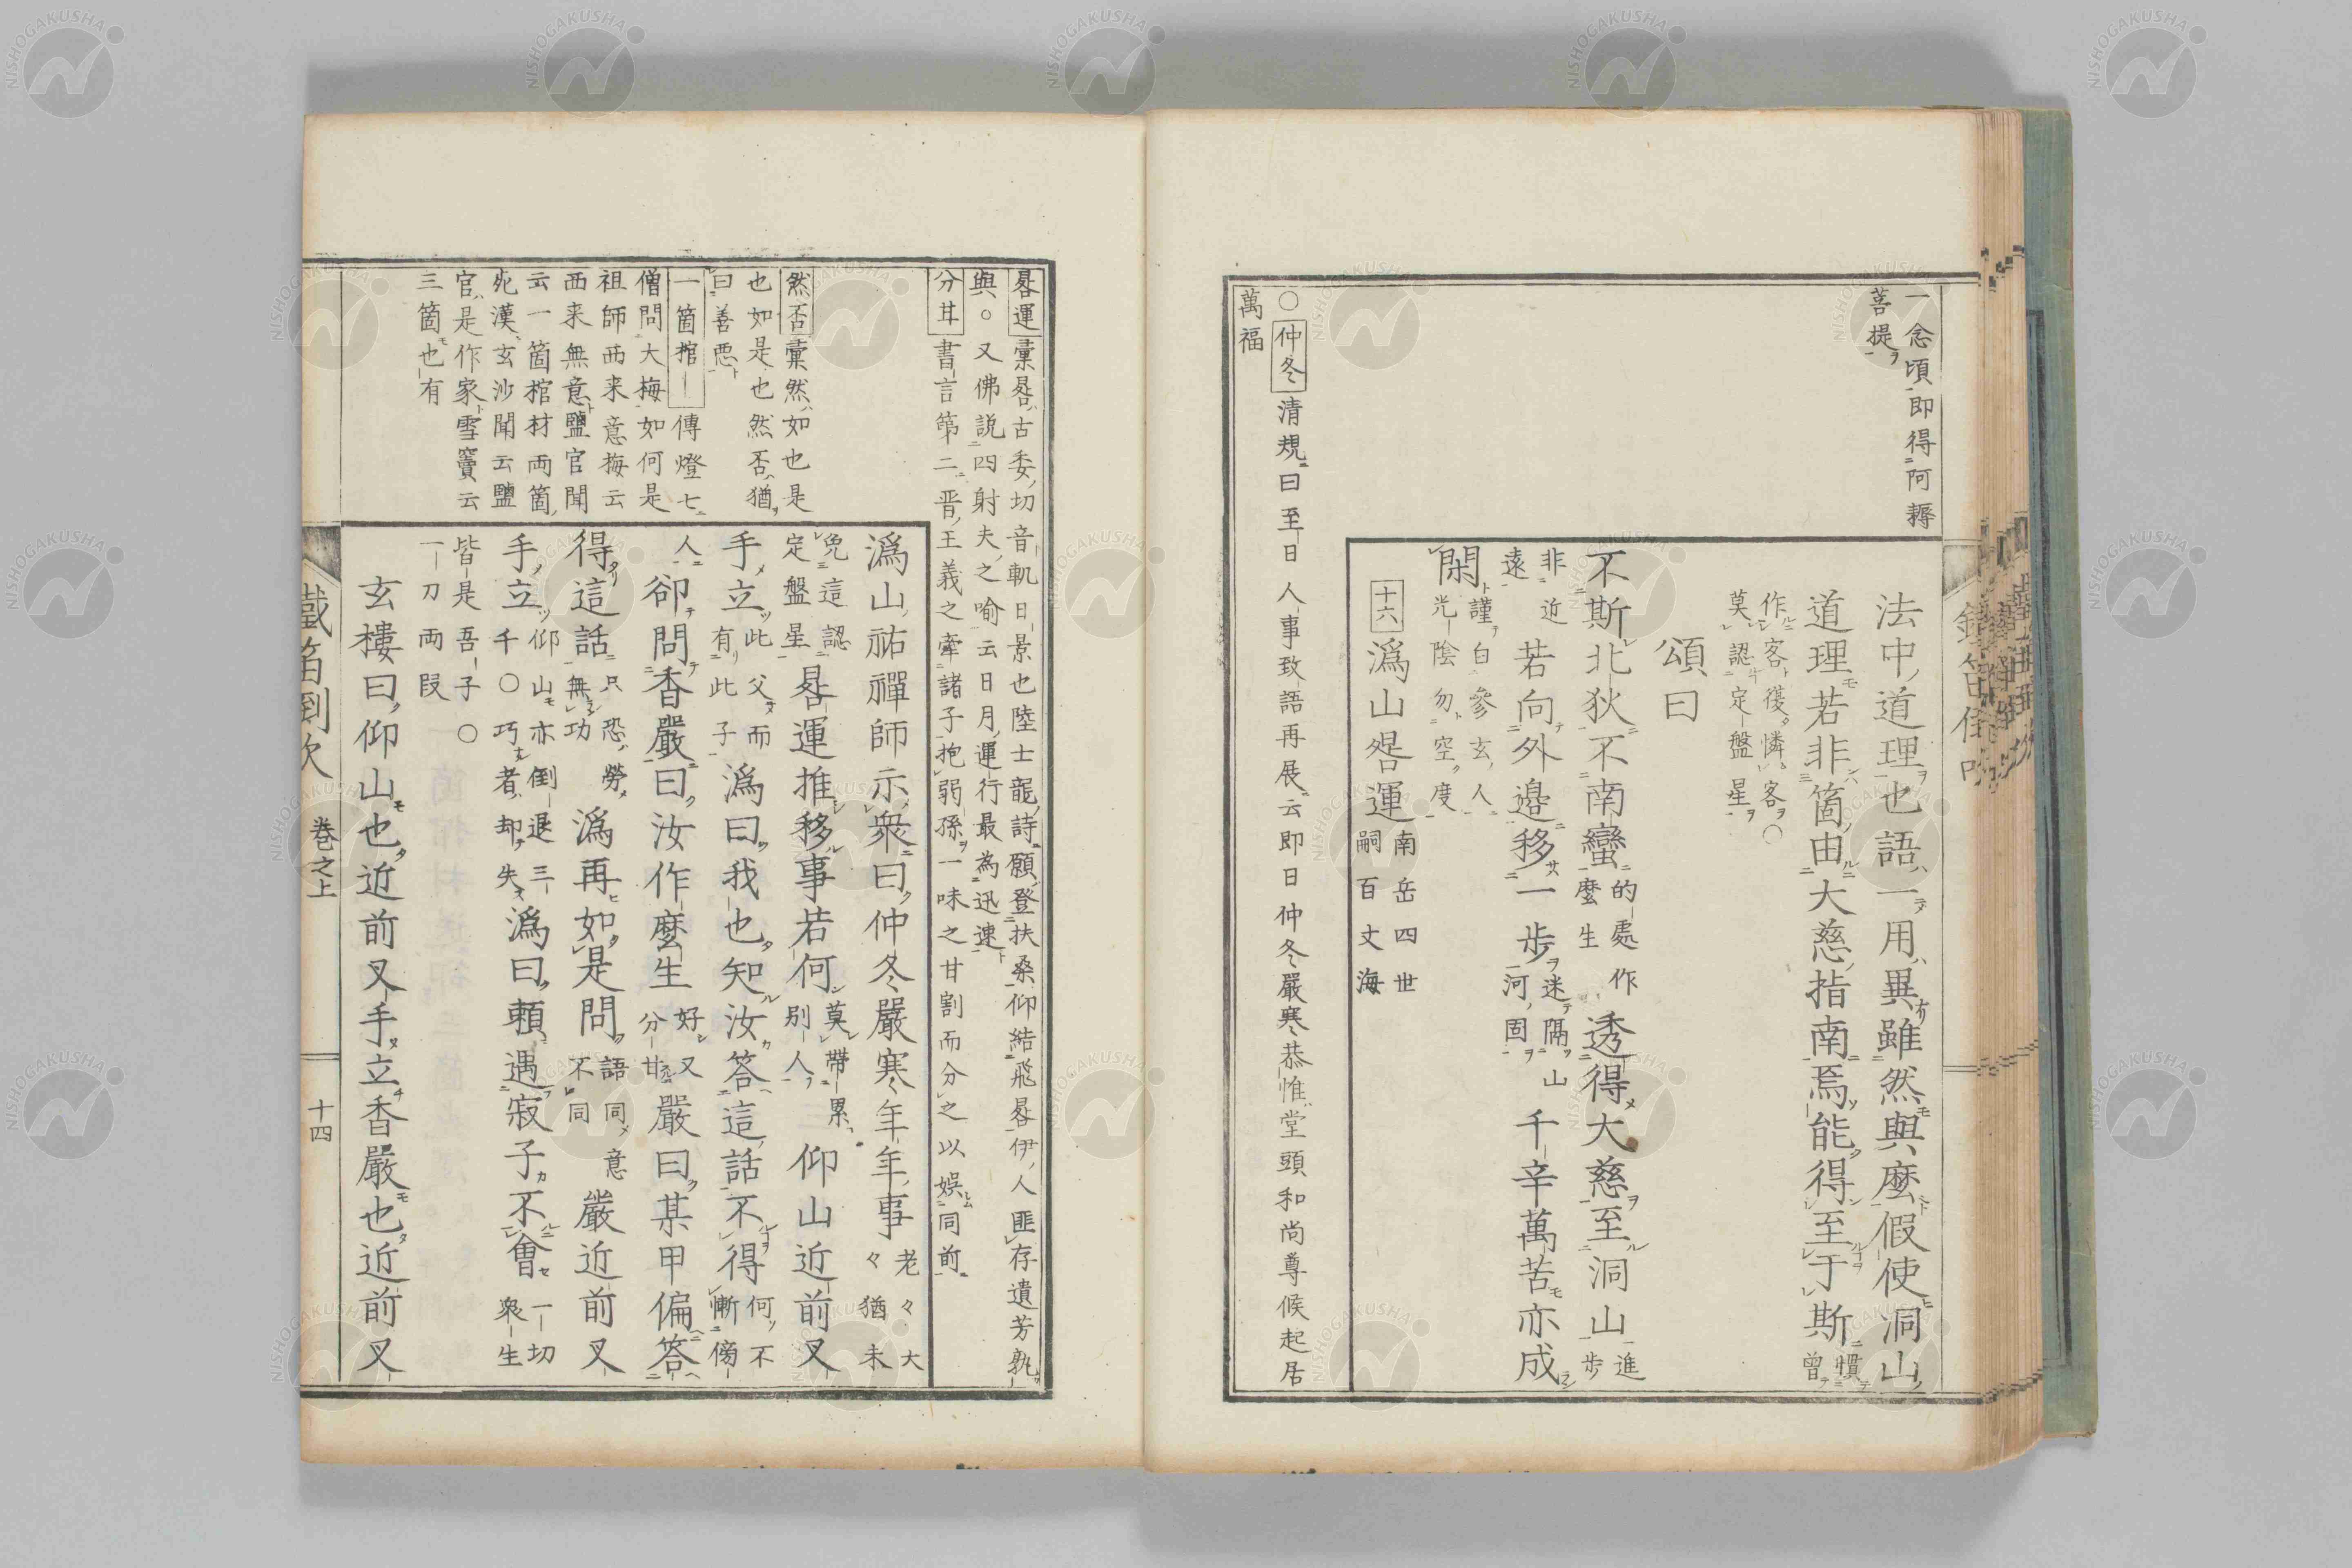 一念頃即得阿耨
菩提
法中道理也語一用異雖然與麼假使洞山
道理若非箇由大慈指南焉能得至于斯慣曾
作客復憐客○
莫認定盤星
頌曰
不斯北狄不南蠻的處作麼生透得大慈至洞山進一步
非近
遠
若向外邊移一步迷隔山河固千辛萬苦亦成
閑謹白參玄人
光陰勿空度
十六
溈山晷運南岳四世
嗣百丈海
○仲冬清規曰至日人事致語再展云即日仲冬嚴寒恭惟堂頭和尚尊候起居
萬福
晷運彙晷古委切音軌日景也陸士龍詩願登扶桑仰結飛晷伊人匪存遺芳孰
與。又佛說四射夫之喻云日月運行最為迅速
分甘書言節二晋王義之牽諸子抱弱孫一味之甘割而分之以娛同前
然否彙然如也是
也如是也然否猶
曰善悪
一箇棺傳燈七
僧問大梅如何是
祖師西来意梅云
西来無意鹽官聞
云一箇棺材両箇
死漢玄沙聞云鹽
官是作家雪竇云
三箇也有
溈山祐禪師示衆曰仲冬嚴寒年年事老々大
々猶未
免這認
定盤星
晷運推移事若何莫帶累
別人
仰山近前叉
手立此父而
有此子
溈曰我也知汝答這話不得何不
慚傍
人
卻問香嚴曰汝作麼生好又
分甘
嚴曰某甲偏答
得這話只恐勞
無功
溈再如是問語同意
不同
嚴近前叉
手立仰山亦倒退三
千○巧者却失
溈曰頼遇寂子不會一切
衆生
皆是吾子○
一刀両段
玄樓曰仰山也近前叉手立香嚴也近前叉
鐵笛倒吹
巻之上
十四
NISHOGAKUSHA